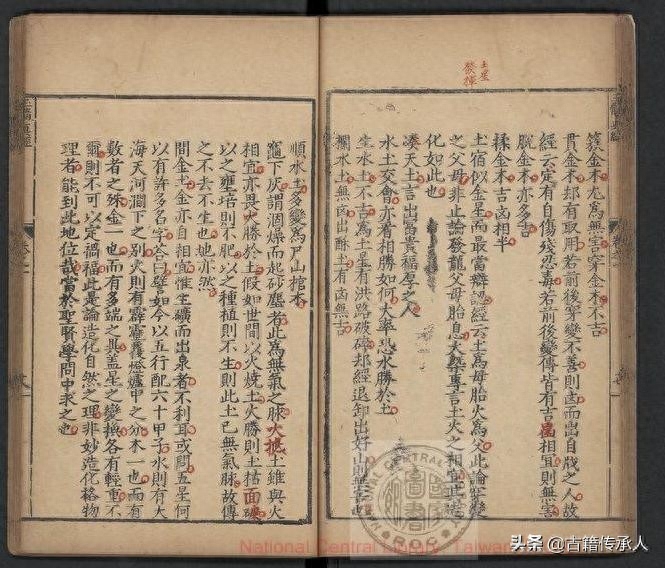 土星
發揮
金木尤為無害穿金木不吉
貫金木却有取用若前後穿變不善則凶而出自戕之人故
經云定有自傷殘忍毒若前後變傳皆有吉相宜則無害
脫金木亦多吉
揉金木吉凶相半
土宿似金星而最當辯認經云土為母胎火為父此論穿變
之父母非止論發龍父母胎息大槩專言土火之相生此造
化如此也
湊天土言出富貴福厚之人
水土交會亦看相勝如何大率恐水勝於土
生水土不吉為土星有洪路破碎却經退卸出好山則無害也
攔水土無凶出酥土有凶無吉
順水土多變為尸山棺木
竈下灰謂涸燥而起砂塵者此為無氣之脉火撼土雖與火
相宜亦畏火勝於土假如世間以火燒土火勝則土枯面
以之壅培則不肥以之種植則不生則此土已無氣脉故傳
之不去不生也地亦然
間金土金亦自相宜惟生礦而出泉者不利耳或問五星何
以有許多名字荅曰譬如今以五行配六十甲子水則有大
海天河澗下之別火則有霹靂覆燈爐中之分木一也而有
數者之殊金一也而有多端之異蓋五星之變換各有輕重不
則不可以定禍福此是論造化自然之理非妙造化格物
理者能到此地位哉當於聖賢學問中求之也
National Central Library, Taiwan
頭条 @古籍传承人